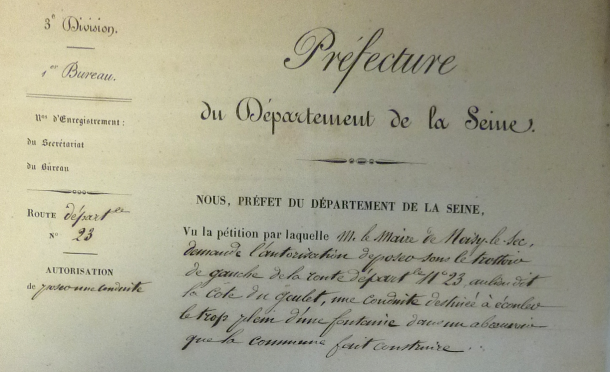 3e Division.
1er Bureau.
Nos d'Enregistrement :
du Secrétariat
du Bureau
ROUTE départle
N° 23
AUTORISATION
de poser une conduite
Préfecture
du Département de la Seine.
NOUS, PRÉFET DU DÉPARTEMENT DE LA SEINE,
Vu la pétition par laquelle M. le Maire de Noisy-le-Sec,
demande l'autorisation de poser sous le trottoir
de gauche de la route départle N° 23, au lieu dit
la Côte du Goulet, une conduite destinée à écouler
le trop plein d'une fontaine dans un abreuvoir
que la commune fait construire.